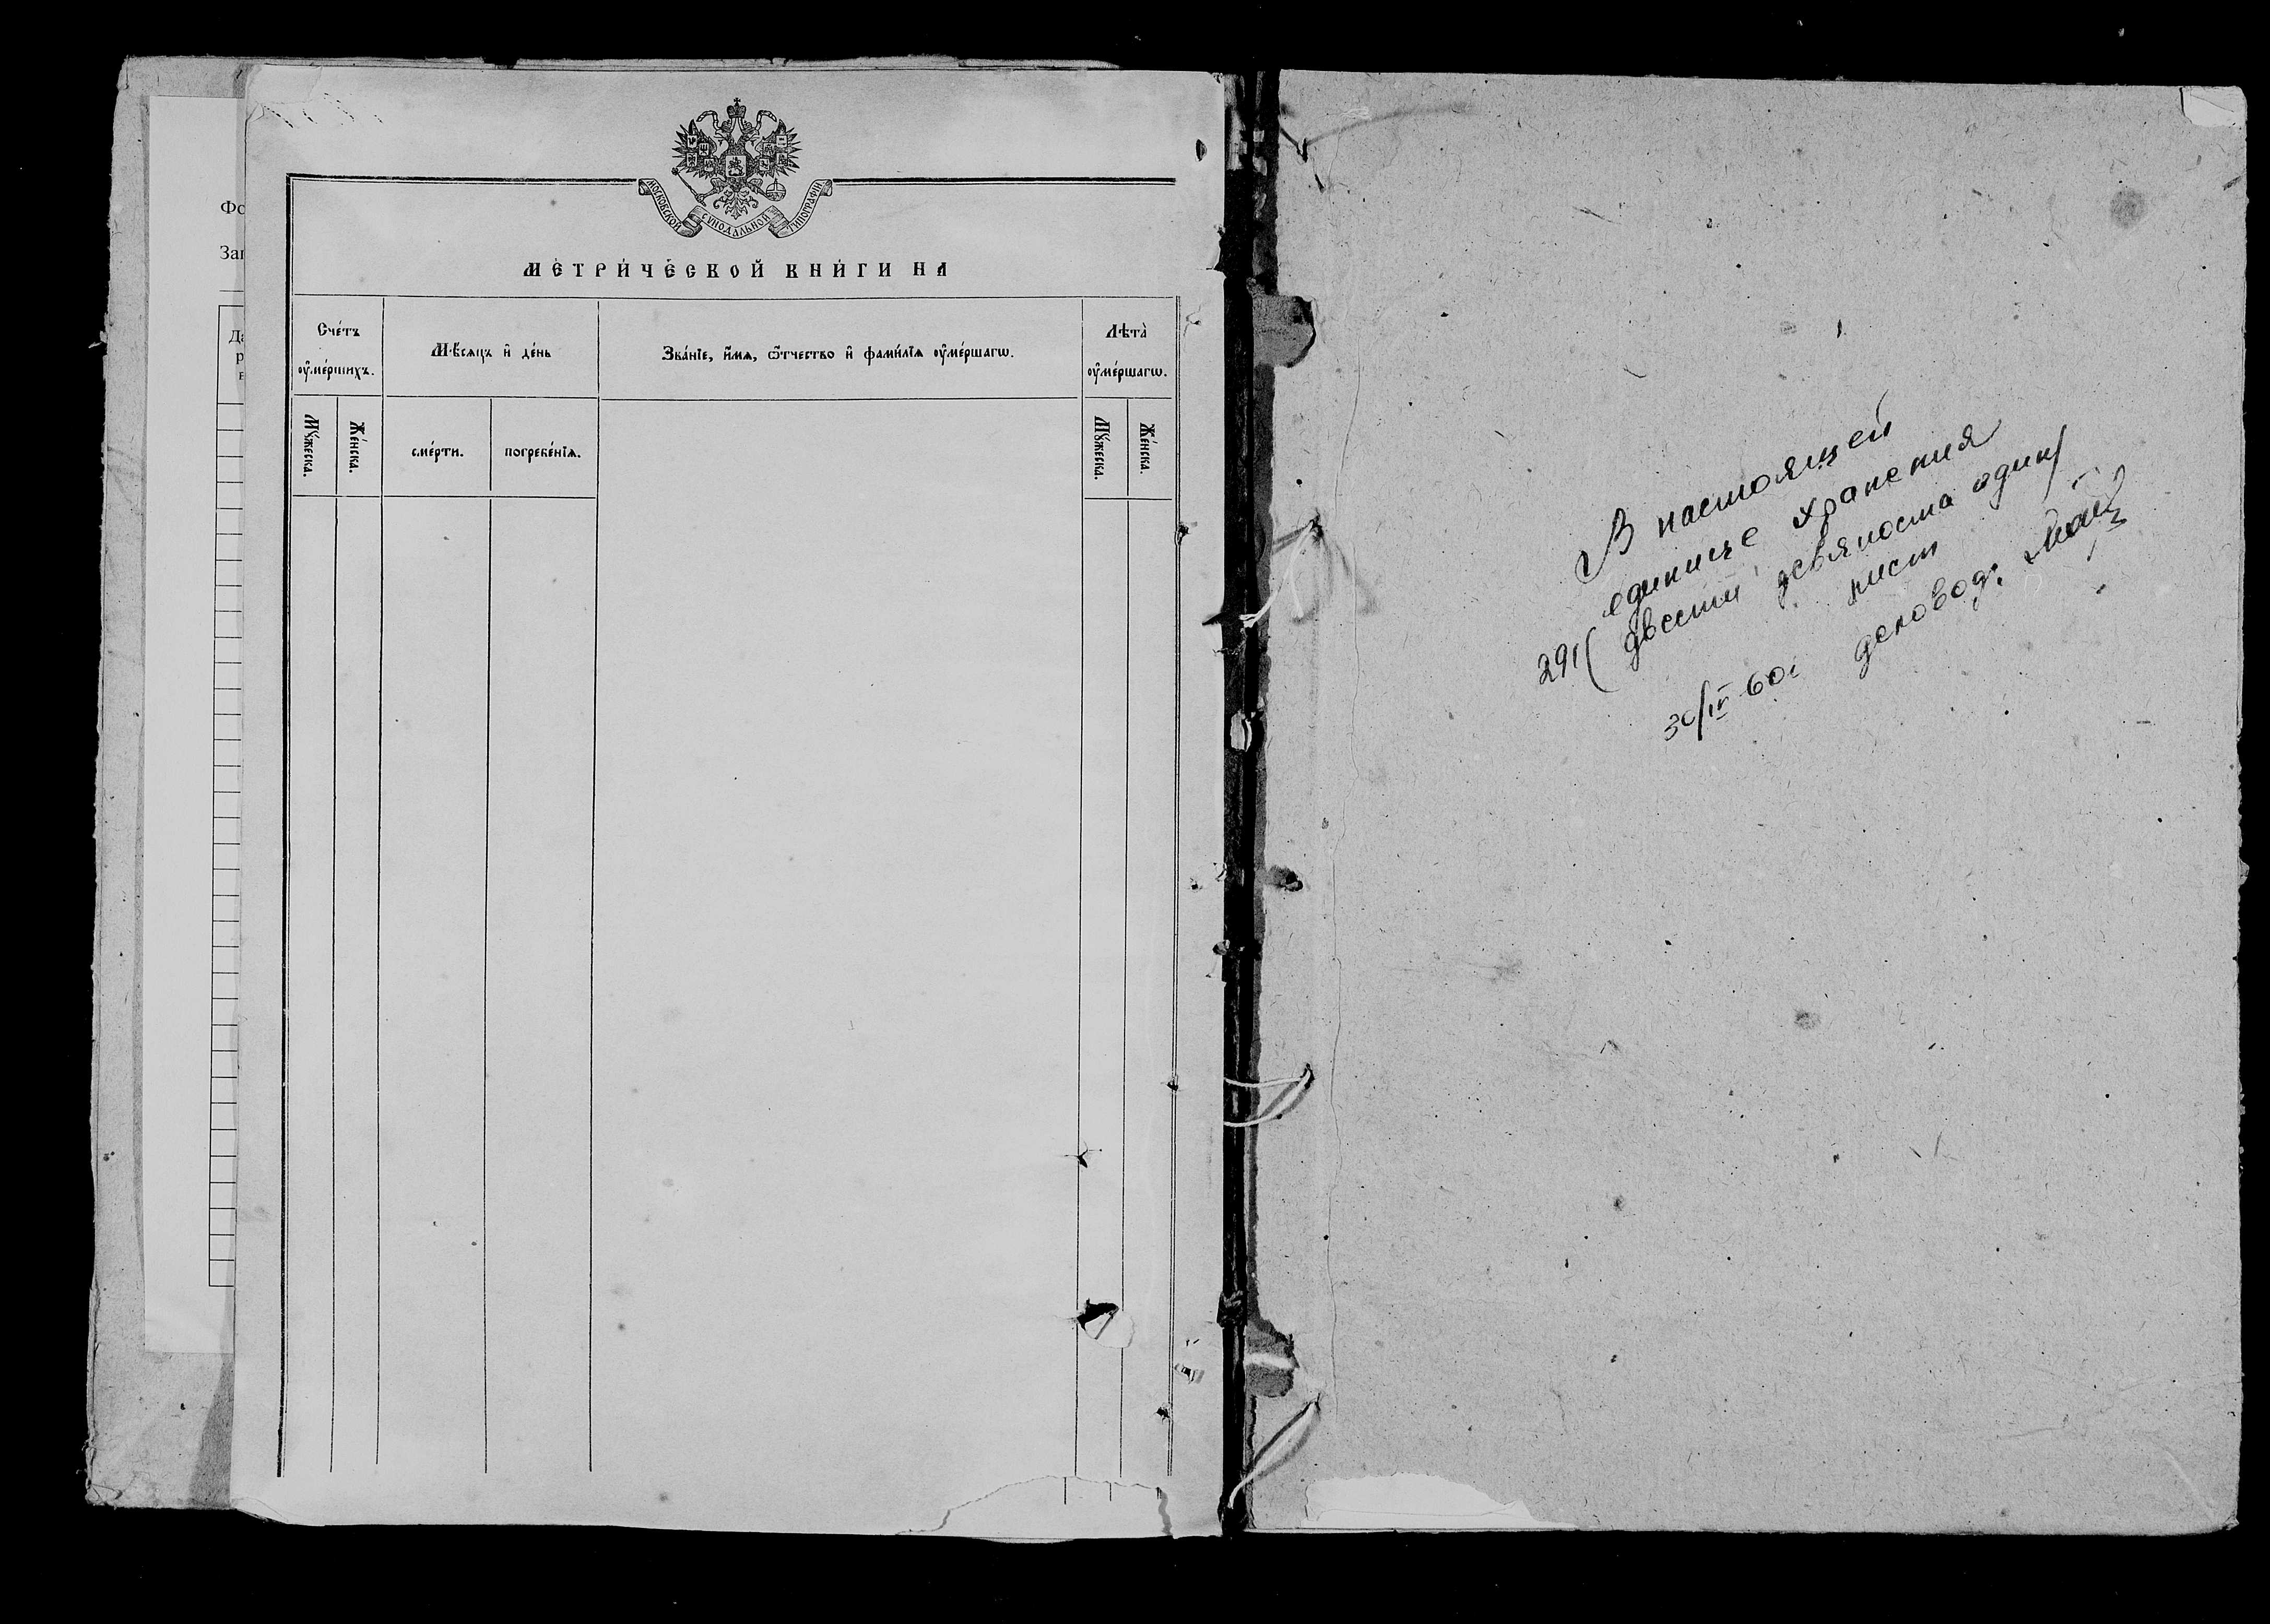 Фо
Заг
Да
р
в
МОСКОВСКОЙ СѴНОДАЛЬНОЙ ТИПОГРАФІИ
МЕТРИ́ЧЕСКОЙ КНИ́ГИ НА
Сче́тъ
ᲂу҆ме́ршихъ.
Мѣ́сяцъ и҆ де́нь
Зва́нїе, и҆́мѧ, ѻ҆́тчество и҆ фами́лїѧ ᲂу҆ме́ршагѡ.
Лѣта̀
ᲂу҆ме́ршагѡ.
Мꙋ́жеска.
Же́нска.
сме́рти.
погребе́нїѧ.
Мꙋ́жеска.
Же́нска.
В настоящей
единице хранения
291( двести девяноста один)
лист
30/IV 60г деловод: